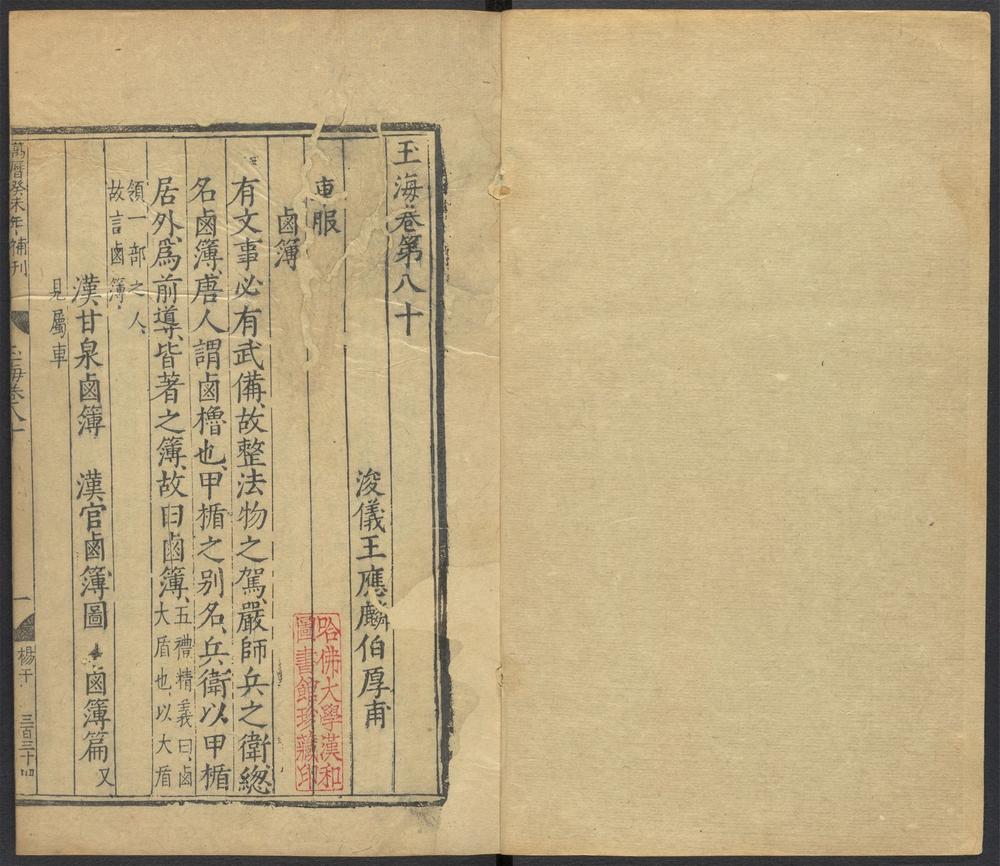 玉海卷第八十
浚儀王應麟伯厚甫
車服
鹵簿
有文事必有武備故整法物之駕嚴師兵之衛緫
名鹵簿唐人謂鹵櫓也甲楯之别名兵衛以甲楯
居外爲前導皆著之簿故曰鹵簿五禮精義曰鹵
大盾也以大盾
領一部之人
故言鹵簿
漢甘泉鹵簿 漢官鹵簿圖 鹵簿篇又
見屬車
萬曆癸未年補刊
玉海卷八十
一
楊于
三百三十四
哈佛大學漢和
圖書館珍藏印